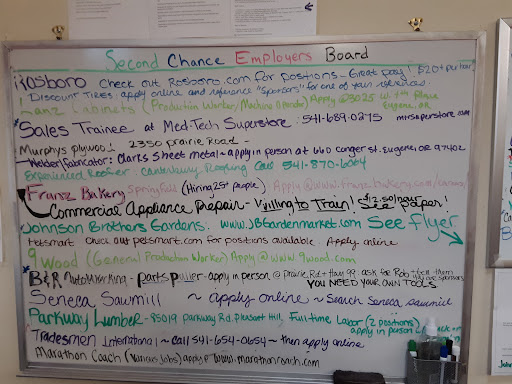 Second Chance Employers Board
Rosboro Check out Rosboro.com for positions - Great pay! $20+ per hour
! Discount Tires: apply online and reference "Sponsors" for one of your
Lanz Cabinets (Production Worker/Machine Operator) Apply @ 3025 W 7th Place
Eugene, OR
*Sales Trainee at Med-Tech Superstore: 541-689-0275 mtrsuperstore.com
Murphy Plywood! 2350 Prairie Road -
Welder/fabricator: Clarks Sheet metal - apply in person at 660 Conger st. Eugene, OR 97402
Experienced Roofer: Canterbury Roofing Call 541-870-6064
Franz Bakery Springfield (Hiring 25+ people) Apply @ www.franzbakery.com/careers
Commercial Appliance Repair - Willing to Train! $12.50/hour See paper!
Johnson Brothers Gardens: www.JBGardenmarket.com See flyer
Petsmart Check out petsmart.com for positions available. Apply online
9Wood (General Production Worker) Apply @ www.9wood.com
*B&R Auto Wrecking - parts puller - apply in person @ Prairie Rd + Hwy 99. ask for Rob - tell them
you are sponsors
YOU NEED YOUR OWN TOOLS
Seneca Sawmill ~ apply online ~ Search Seneca sawmill
Parkway Lumber - 85019 Parkway Rd. Pleasant Hill, Full time Labor (2 positions)
apply in person
Tradesmen International ~ Call 541-654-0654 ~ then apply online
Marathon Coach (Various jobs) apply @ www.marathoncoach.com